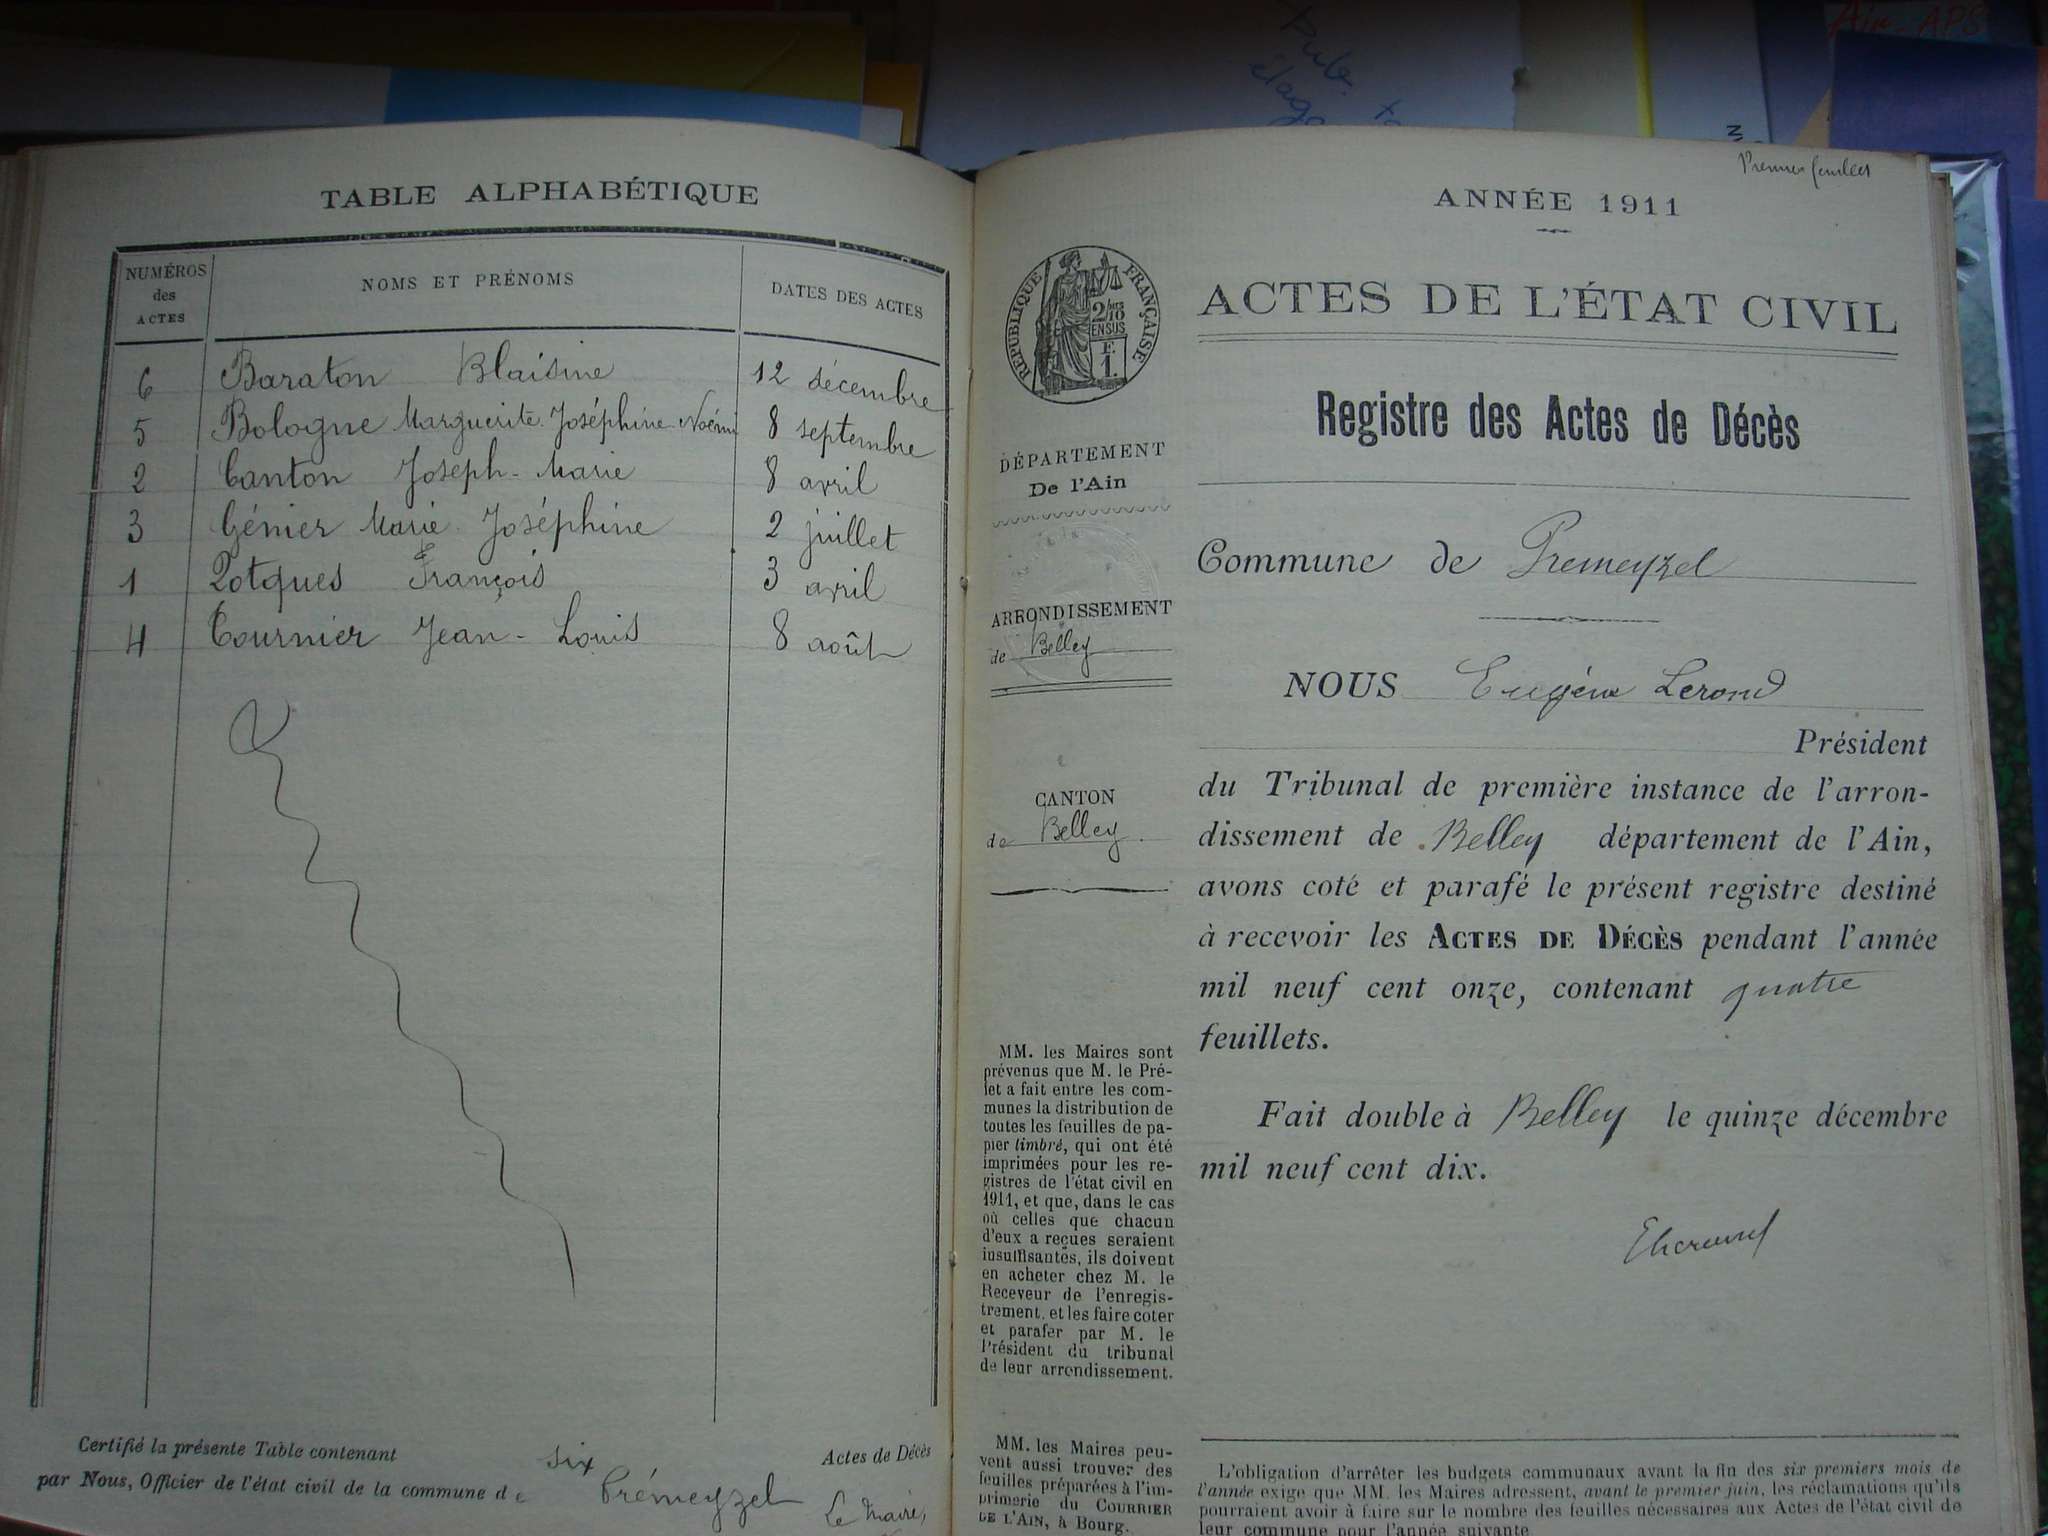 Pub.
élag
Air. APS
TABLE ALPHABÉTIQUE
NUMÉROS des ACTES NOMS ET PRÉNOMS DATES DES ACTES
6 Baraton Blaisine 12 décembre
5 Bologne Marguerite Joséphine Noémi 8 septembre
2 Canton Joseph-Marie 8 avril
3 Génier Marie Joséphine 2 juillet
1 François 3 avril
4 Tournier Jean-Louis 8 août
Certifié la présente Table contenant six Actes de Décès
par Nous, Officier de l'état civil de la commune de Prémeyzel
Le Maire,
Premier feuillet
ANNÉE 1911
ACTES DE L'ÉTAT CIVIL
RÉPUBLIQUE FRANÇAISE
2/10
EN SUS
F.
1.
DÉPARTEMENT
De l'Ain
ARRONDISSEMENT
de Belley
CANTON
de Belley
MM. les Maires sont
prévenus que M. le Pré-
fet a fait entre les com-
munes la distribution de
toutes les feuilles de pa-
pier timbré, qui ont été
imprimées pour les re-
gistres de l'état civil en
1911, et que, dans le cas
où celles que chacun
d'eux a reçues seraient
insuffisantes, ils doivent
en acheter chez M. le
Receveur de l'enregis-
trement, et les faire coter
et parafer par M. le
Président du tribunal
de leur arrondissement.
MM. les Maires peu-
vent aussi trouver des
feuilles préparées à l'im-
primerie du COURRIER
DE L'AIN, à Bourg.
Registre des Actes de Décès
Commune de Premeyzel
NOUS Eugène Lerond
Président
du Tribunal de première instance de l'arron-
dissement de Belley département de l'Ain,
avons coté et parafé le présent registre destiné
à recevoir les ACTES DE DÉCÈS pendant l'année
mil neuf cent onze, contenant quatre
feuillets.
Fait double à Belley le quinze décembre
mil neuf cent dix.
L'obligation d'arrêter les budgets communaux avant la fin des six premiers mois de
l'année exige que MM. les Maires adressent, avant le premier juin, les réclamations qu'ils
pourraient avoir à faire sur le nombre des feuilles nécessaires aux Actes de l'état civil de
leur commune pour l'année suivante